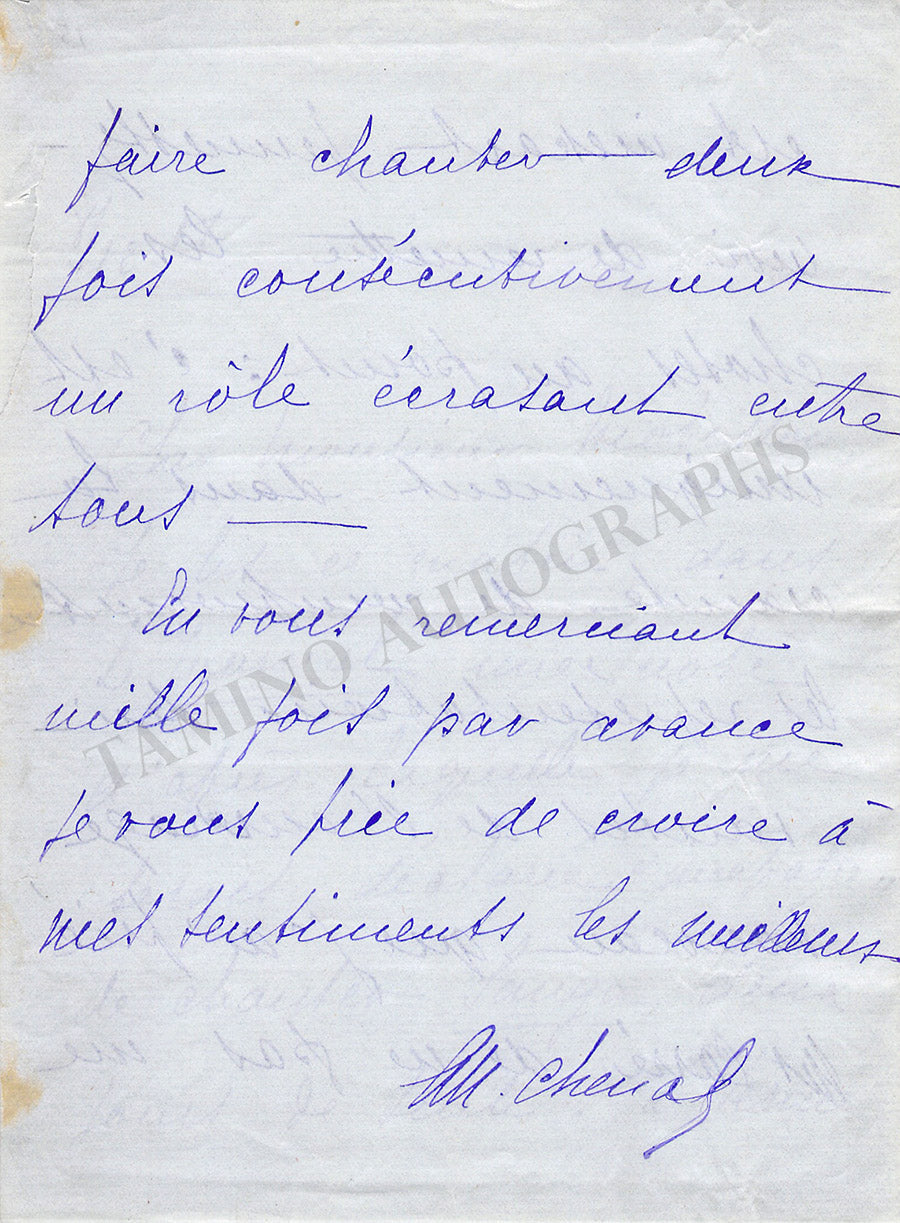 faire chanter deux
fois consécutivement
un rôle écrasant entre
tous —
En vous remerciant
mille fois par avance
je vous prie de croire à
mes sentiments les meilleurs
M. Chenal
TAMINO AUTOGRAPHS